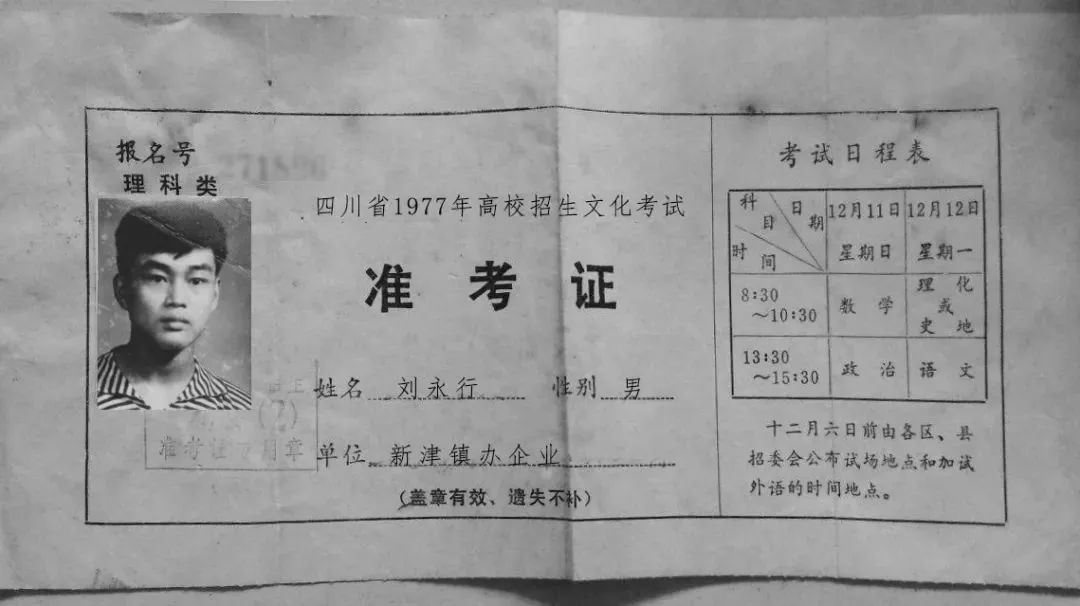 报名号
理科类
四川省1977年高校招生文化考试
准考证
姓名 刘永行 性别 男
单位 新津镇办企业
(盖章有效、遗失不补)
准考证专用章
考试日程表
科目 日期 时间
12月11日 12月12日
星期日 星期一
8:30～10:30 数学 理化或史地
13:30～15:30 政治 语文
十二月六日前由各区、县
招委会公布试场地点和加试
外语的时间地点。